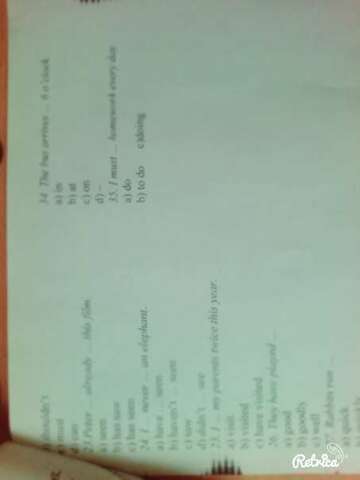 shouldn't
must
can
23. Peter ... already ... this film.
a) seen
b) has saw
c) has seen
24. I ... never ... an elephant.
a) have ... seen
b) haven't ... seen
c) saw
d) didn't ... see
25. I ... my parents twice this year.
a) visit
b) visited
c) have visited
26. They have played ...
a) good
b) goodly
c) well
Rabbits run ...
quick
34. The bus arrives ... 6 o'clock
a) in
b) at
c) on
d) –
35. I must ... homework every day
a) do
b) to do c)doing
Retrica